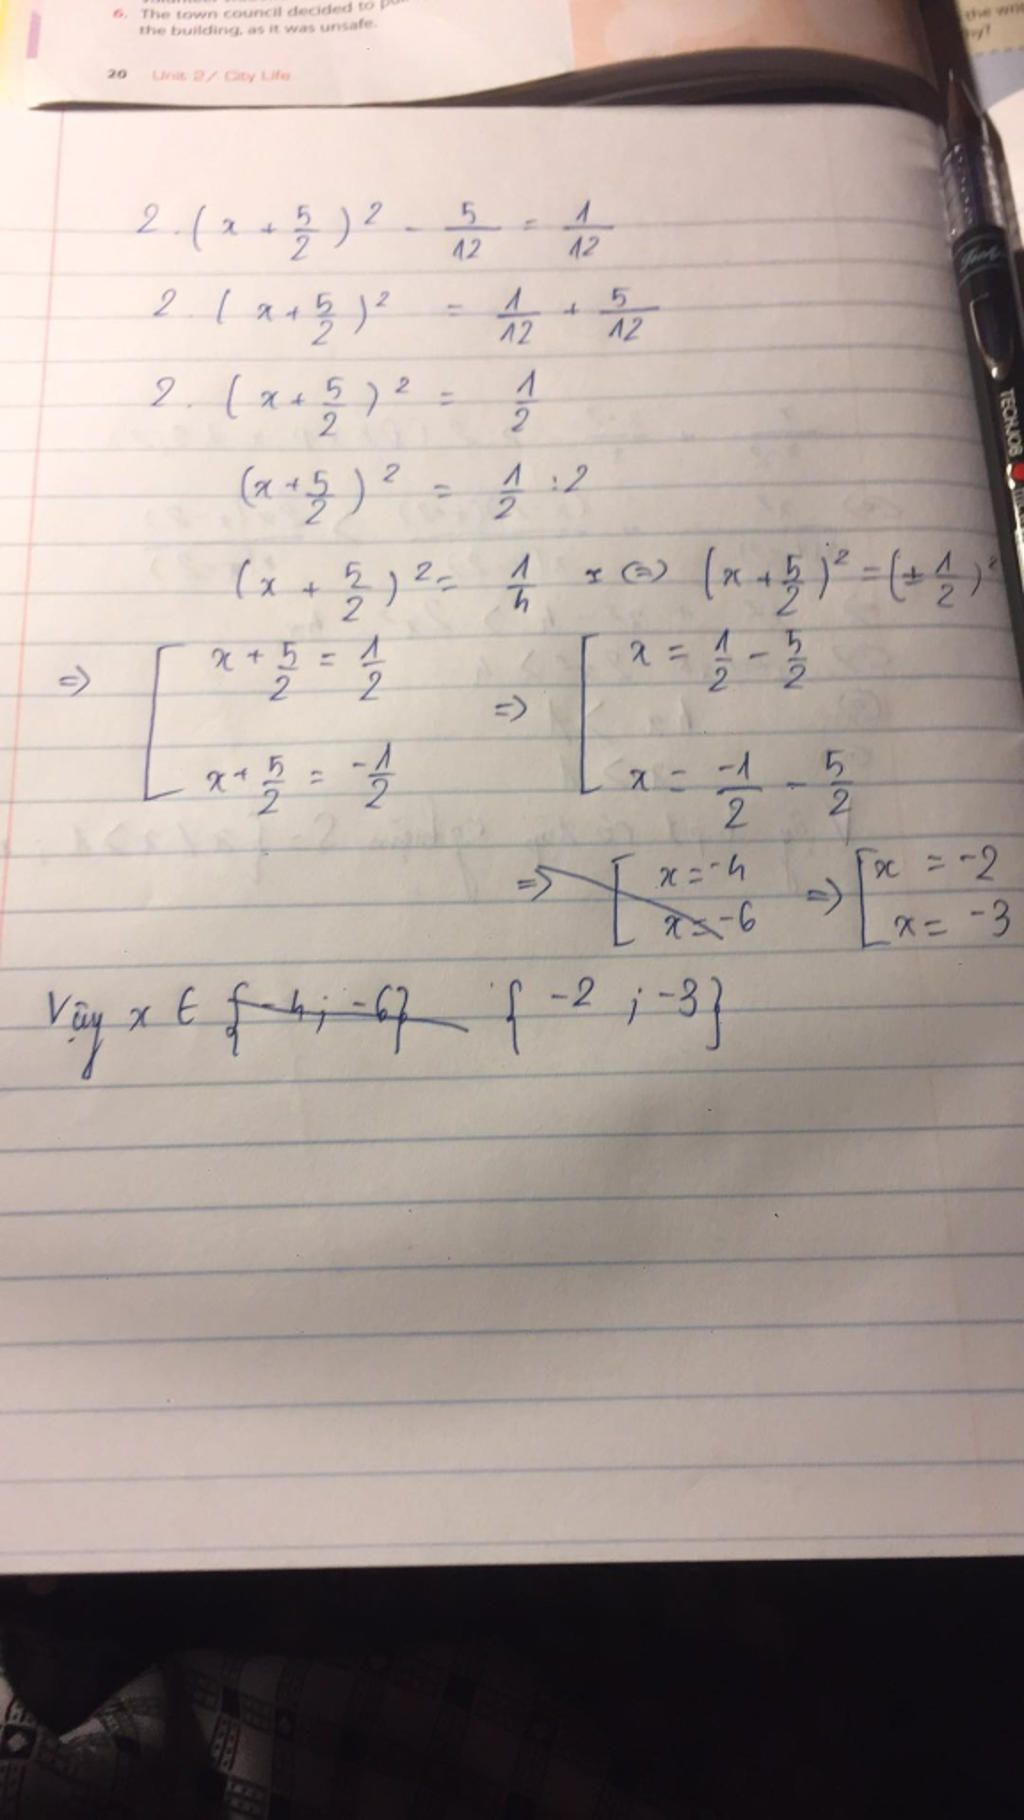 6. The town council decided to
the building, as it was unsafe.
20 Unit 2/ City Life
the
TECHJOB
2.(x + 5/2)² - 5/12 = 1/12
2.(x + 5/2)² = 1/12 + 5/12
2.(x + 5/2)² = 1/2
(x + 5/2)² = 1/2 : 2
(x + 5/2)² = 1/4 (=) (x + 5/2)² = (± 1/2)²
=> [ x + 5/2 = 1/2 => [ x = 1/2 - 5/2
x + 5/2 = -1/2 x = -1/2 - 5/2
=> [ x = -4 => [ x = -2
x = -6 x = -3
Vậy x ∈ {-4; -6} {-2 ; -3}